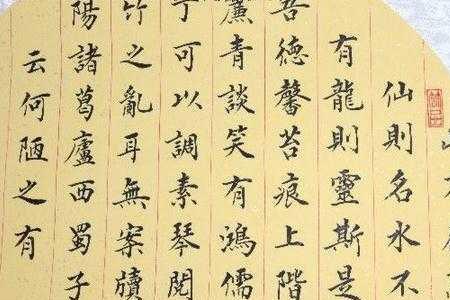 仙則名水不
有龍則靈斯是
吾德馨苔痕上階
簾青談笑有鴻儒
丁可以調素琴閱
竹之亂耳無案牘
陽諸葛廬西蜀子
云何陋之有